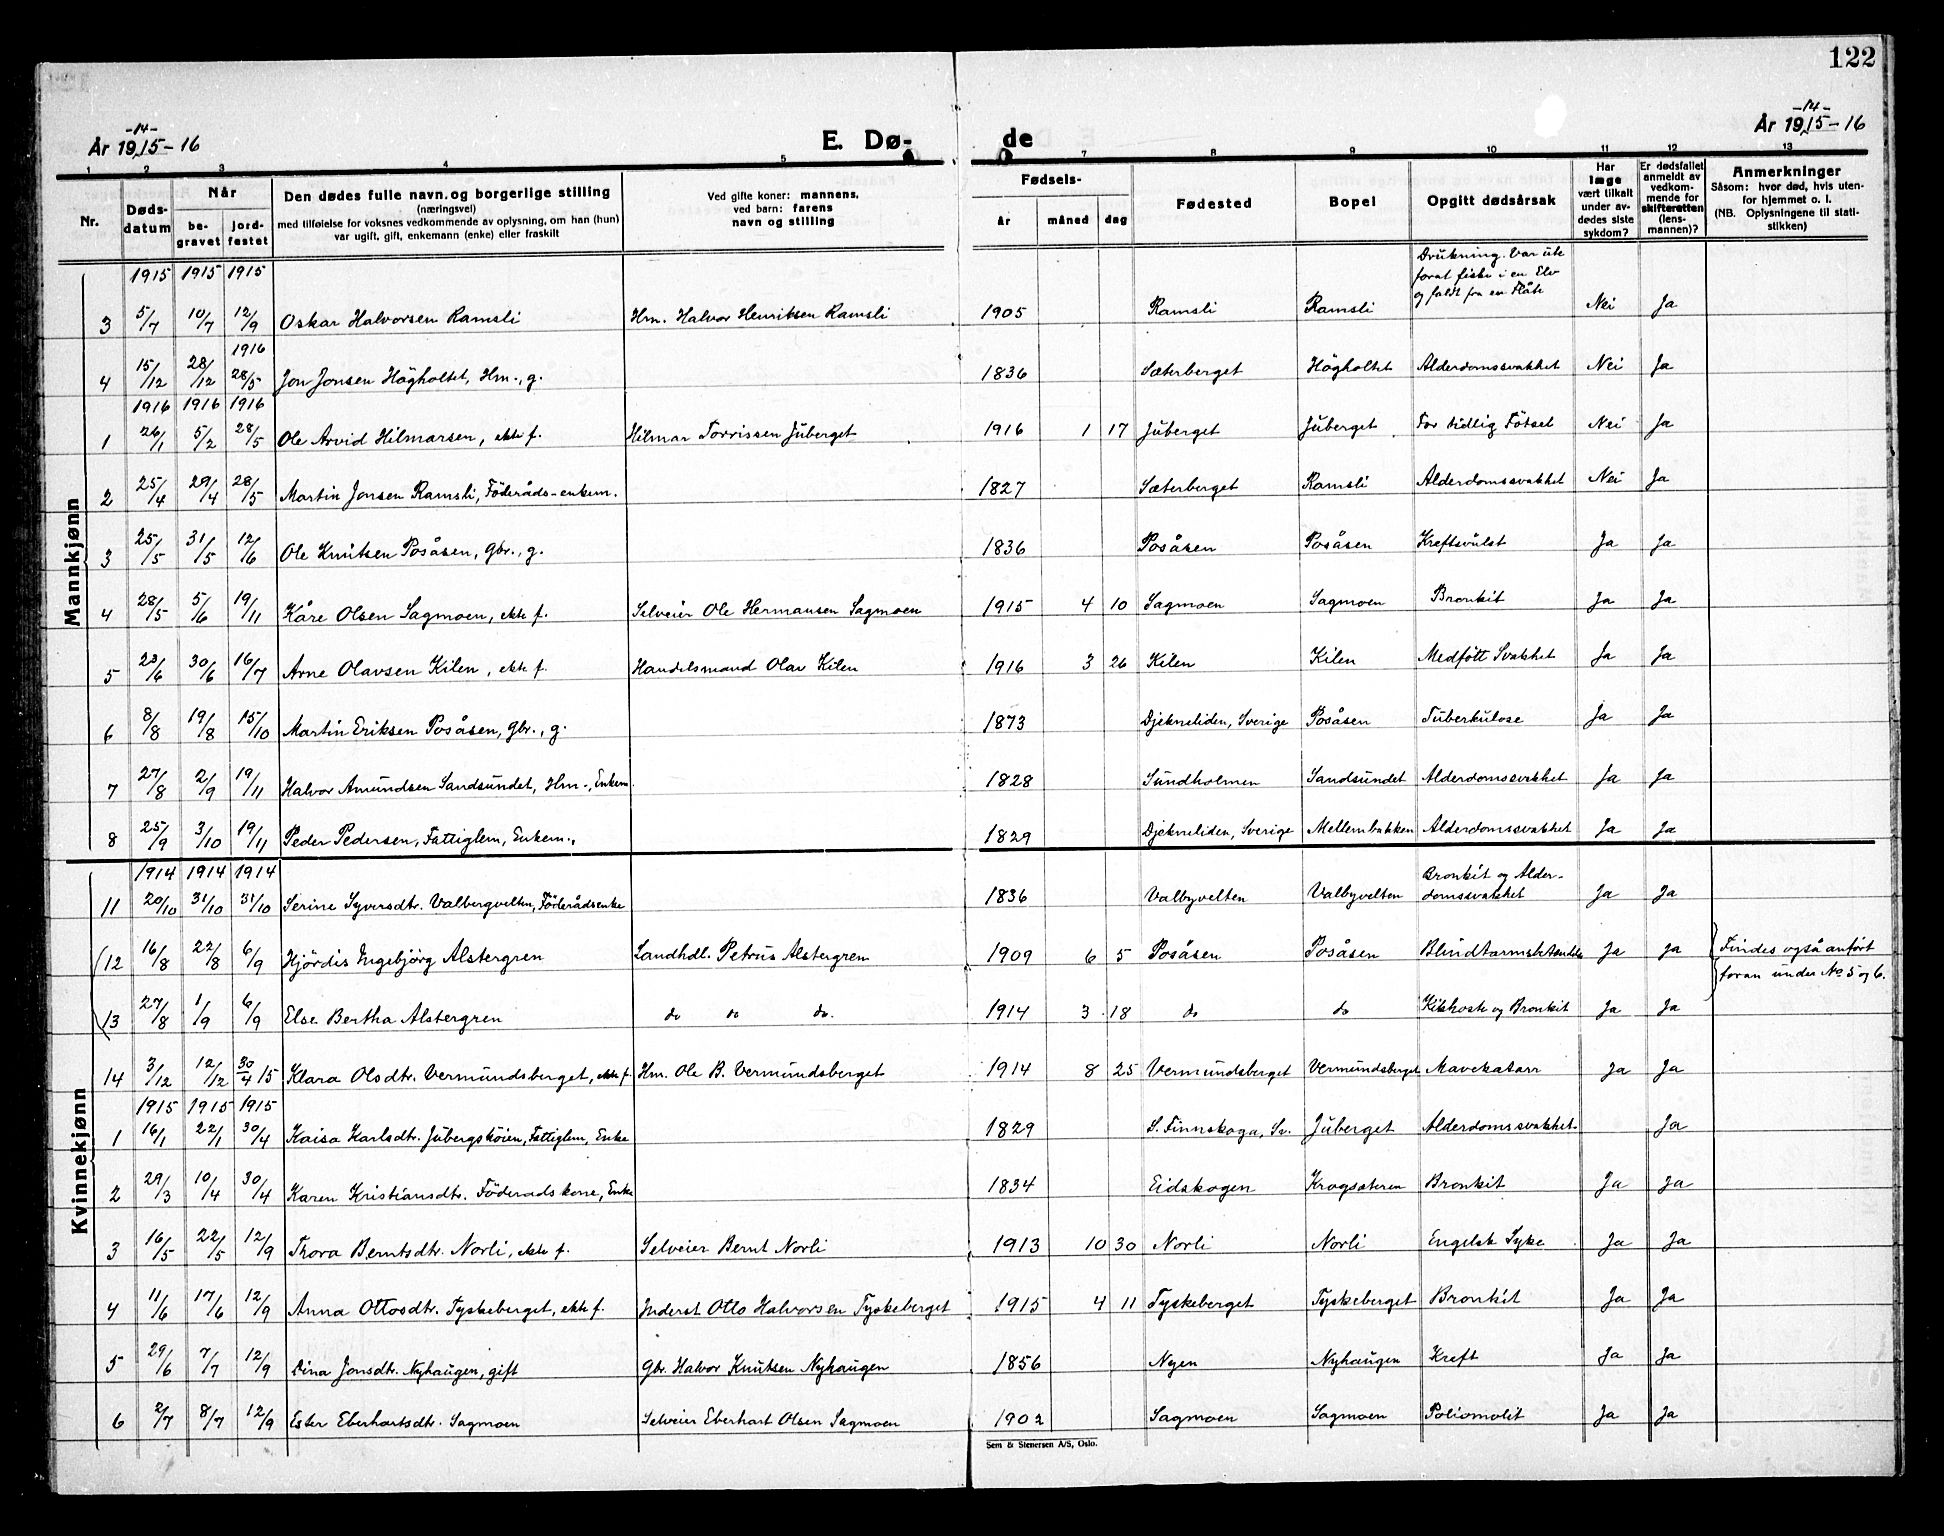 122
-14-
År 1915-16
E. Dø-
de
-14-
År 1915-16
1 2 3 4 5 7 8 9 10 11 12 13
Nr.
Døds-
datum
Når
be-
gravet
jord-
festet
Den dødes fulle navn og borgerlige stilling
(næringsvei)
med tilføielse for voksnes vedkommende av oplysning, om han (hun)
var ugift, gift, enkemann (enke) eller fraskilt
Ved gifte koner: mannens,
ved barn: farens
navn og stilling
Fødsels-
år måned dag
Fødested
Bopel
Opgitt dødsårsak
Har
læge
vært tilkalt
under av-
dødes siste
sykdom?
Er dødsfallet
anmeldt av
vedkom-
mende for
skifteretten
(lens-
mannen)?
Anmerkninger
Såsom: hvor død, hvis uten-
for hjemmet o. l.
(NB. Oplysningene til stati-
stikken)
Mannkjønn
1915 1915 1915
Drukning. Var ute
forat fiske i en Elv
og faldt fra en Flåte
3 5/7 10/7 12/9 Oskar Halvorsen Ramsli Hm. Halvor Henriksen Ramsli 1905 Ramsli Ramsli Nei Ja
1916
4 15/12 28/12 28/5 Jon Jonsen Högholtet, Hm., g. 1836 Sæterberget Högholtet Alderdomssvakhet Nei Ja
1916 1916 1916
1 26/1 5/2 28/5 Ole Arvid Hilmarsen, ekte f. Hilmar Torrissen Juberget 1916 1 17 Juberget Juberget For tidlig Fötsel Nei Ja
2 25/4 29/4 28/5 Martin Jonsen Ramsli, Föderåds-enkem. 1827 Sæterberget Ramsli Alderdomssvakhet Nei Ja
3 25/5 31/5 12/6 Ole Knutsen Posåsen, Gbr., g. 1836 Posåsen Posåsen Kreftsvulst Ja Ja
4 28/5 5/6 19/11 Kåre Olsen Sagmoen, ekte f. Selveier Ole Hermansen Sagmoen 1915 4 10 Sagmoen Sagmoen Bronkit Ja Ja
5 23/6 30/6 16/7 Arne Olavsen Kilen, ekte f. Handelsmand Olav Kilen 1916 3 26 Kilen Kilen Medfött Svakhet Ja Ja
6 8/8 19/8 15/10 Martin Eriksen Posåsen, Gbr., g. 1873 Djekneliden, Sverige Posåsen Tuberkulose Ja Ja
7 27/8 2/9 19/11 Halvor Amundsen Sandsundet, Hm-, Enkem. 1828 Sundholmen Sandsundet Alderdomssvakhet Ja Ja
8 25/9 3/10 19/11 Peder Pedersen, Fattiglem, Enkem., 1829 Djekneliden, Sverige Mellembakken Alderdomssvakhet Ja Ja
Kvinnekjønn
1914 1914 1914
Bronkit og Alder-
11 20/10 31/10 31/10 Serine Syversdtr. Valbergvelten, Föderådsenke 1836 Valbyvelten Valbyvelten domssvakhet Ja Ja
(12 16/8 22/8 6/9 Hjördis Ingebjörg Alstergren Landhdl. Petrus Alstergren 1909 6 5 Posåsen Posåsen Ja Ja Findes også anfört
foran under No 5 og 6.
(13 27/8 1/9 6/9 Else Bertha Alstergren do do do. 1914 3 18 do do Kikhoste og Bronkit Ja Ja
14 3/12 12/12 30/4 15 Klara Olsdtr. Vermundsberget, ekte f. Hm. Ole B. Vermundsberget 1914 8 25 Vermundsberget Vermundsberget Mavekatarr Ja Ja
1915 1915 1915
1 16/1 22/1 30/4 Kaisa Karlsdtr. Jubergskoien, Fattiglem, Enke 1829 S. Finnskoga, Sv. Juberget Alderdomssvakhet Ja
2 29/3 10/4 30/4 Karen Kristiansdtr. Föderadskone, Enke 1834 Eidskogen Krogsæteren Bronkit Ja Ja
3 16/5 22/5 12/9 Thora Berntsdtr. Norli, ekte f. Selveier Bernt Norli 1913 10 30 Norli Norli Engelsk Syke Ja Ja
4 11/6 17/6 12/9 Anna Ottosdtr. Tyskeberget, ekte f. Inderst Otto Halvorsen Tyskeberget 1915 4 11 Tyskeberget Tyskeberget Bronkit Ja Ja
5 29/6 7/7 12/9 Dina Jonsdtr. Nyhaugen, gift Gbr. Halvor Knutsen Nyhaugen 1856 Nyen Nyhaugen Kreft Ja Ja
6 2/7 8/7 12/9 Ester Eberhartsdtr. Sagmoen Selveier Eberhart Olsen Sagmoen 1902 Sagmoen Sagmoen Poliomolit Ja Ja
Sem & Stenersen A/S, Oslo.